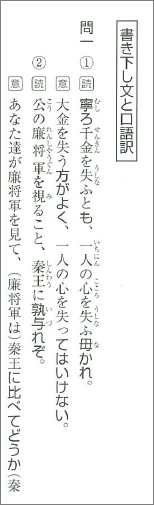 書き下し文と口語訳
問一 ① 読 寧ろ千金を失ふとも、一人の心を失ふ毋かれ。
意 大金を失う方がよく、一人の心を失ってはいけない。
② 読 公の廉将軍を視ること、秦王に孰与れぞ。
意 あなた達が廉将軍を見て、(廉将軍は)秦王に比べてどうか(秦